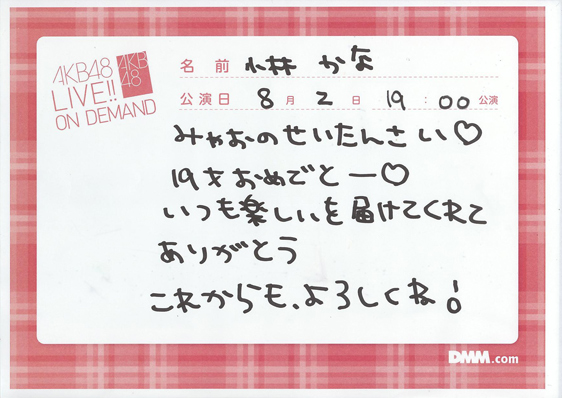 AKB48
LIVE!!
ON DEMAND
AKB
48
名 前 小林 かな
公演日 8月 2日 19:00公演
みゃおのせいたんさい♡
19才おめでとー♡
いつも楽しいを届けてくれて
ありがとう
これからも、よろしくね!
DMM.com